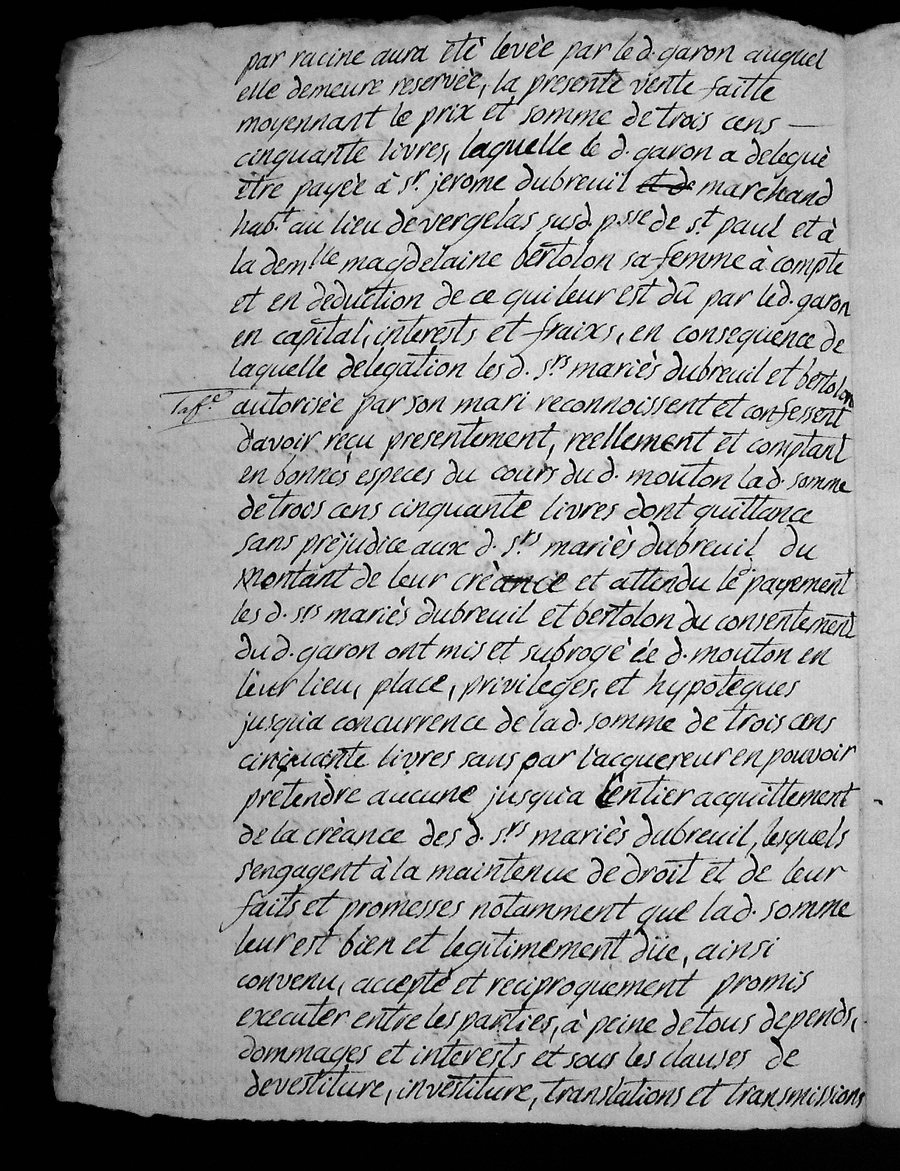 par racine aura eté levée par le d. garon auquel
elle demeure reservée, la presente vente faitte
moyennant le prix et somme de trois cens
cinquante livres, laquelle le d. garon a delegué
etre payée à sr. jerome dubreuil et de marchand
habt. au lieu de vergelas susd. psse de st paul et à
la demlle magdelaine bertolon sa femme à compte
et en deduction de ce qui leur est dû par le d. garon
en capital, interests et fraixs, en consequence de
laquelle delegation les d. srs mariés dubreuil et bertolon
autorisée par son mari reconnoissent et confessent
d'avoir reçu presentement, reellement et comptant
en bonnes especes du cours du d. mouton la d. somme
de trois cens cinquante livres dont quittance
sans prejudice aux d. srs mariés dubreuil du
montant de leur créance et attendu le payement
les d. srs mariés dubreuil et bertolon du consentement
du d. garon ont mis et subrogé le d. mouton en
leur lieu, place, privileges, et hypoteques
jusqu'a concurrence de la d. somme de trois cens
cinquante livres sans par l'acquereur en pouvoir
pretendre aucune jusqu'a l'entier acquittement
de la créance des d. srs mariés dubreuil, lesquels
s'engagent à la maintenue de droit et de leur
faits et promesses notamment que la d. somme
leur est bien et legitimement düe, ainsi
convenu, accepté et reciproquement promis
executer entre les parties, à peine de tous depends,
dommages et interests et sous les clauses de
devestiture, investiture, translations et transmissions